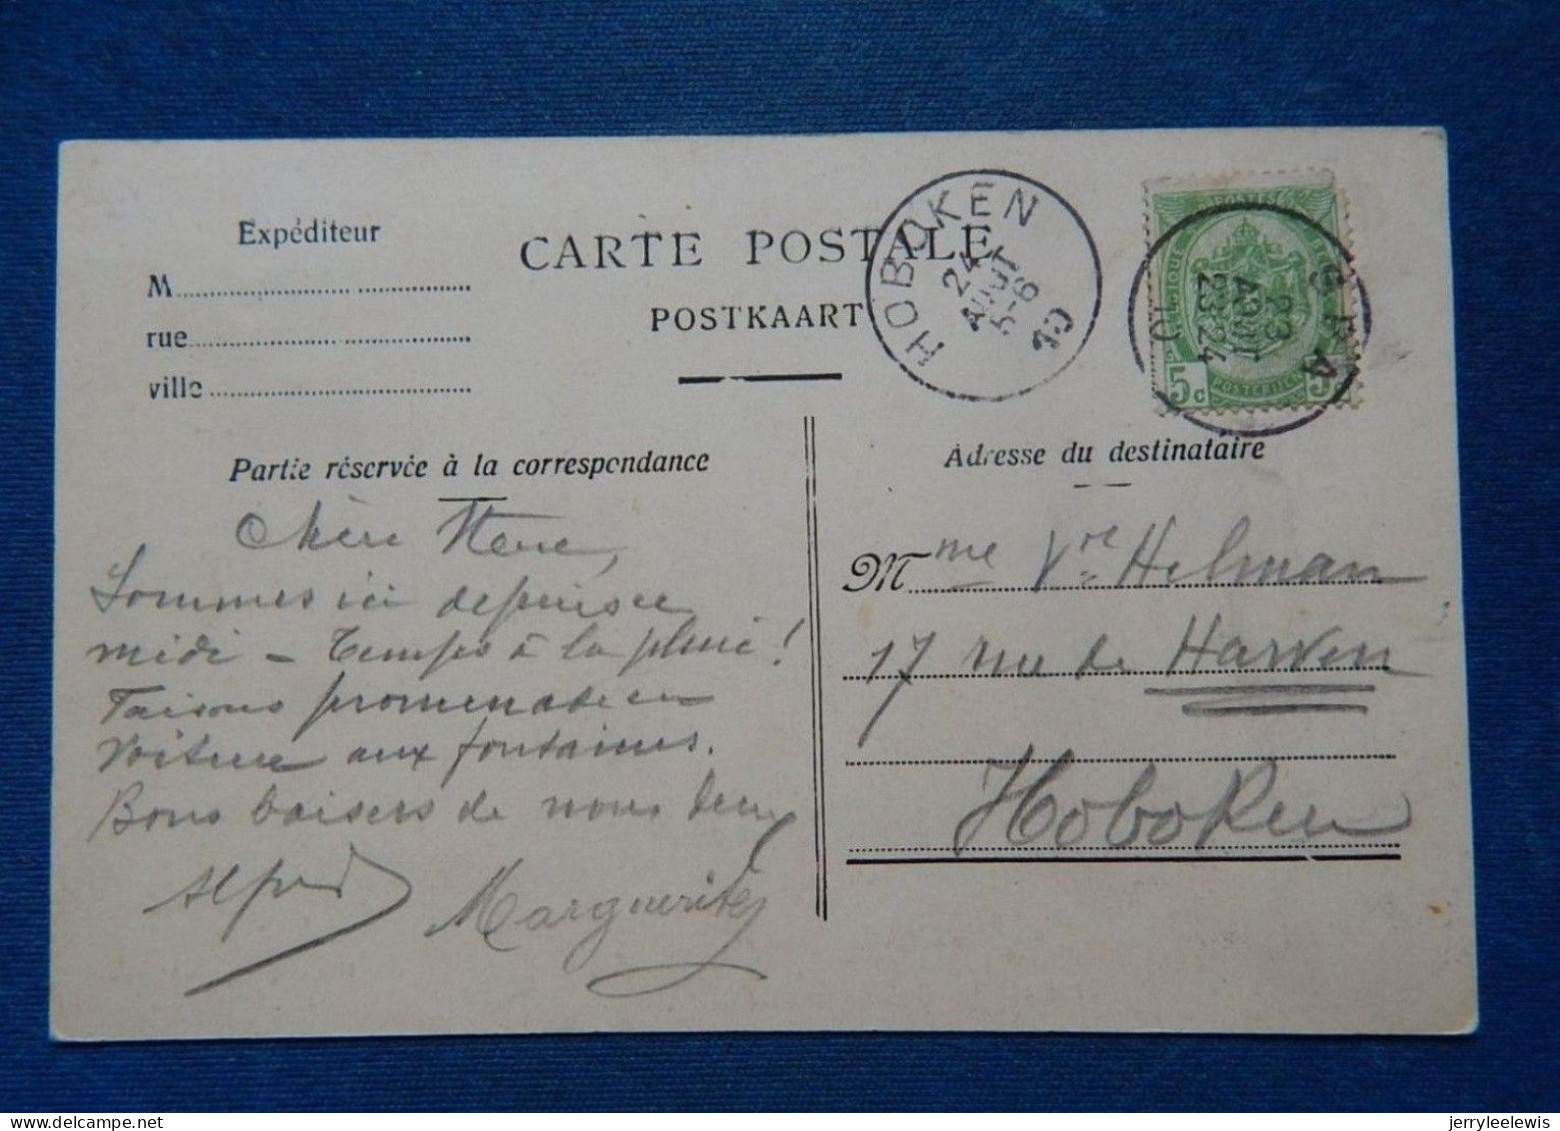 Expéditeur
M
rue
ville
CARTE POSTALE
POSTKAART
HOBOKEN
24
AOUT
5-6
10
SPA
23
AOUT
23-24
10
5c 5c
Partie réservée à la correspondance
Adresse du destinataire
Chère
Sommes ici depuis ce
midi – Temps à la pluie!
Faisons promenade en
voiture aux fontaines.
Bons baisers de nous deux
Alfred Marguerite
Mme Vve Helman
17 rue de
Hoboken
jerryleelewis